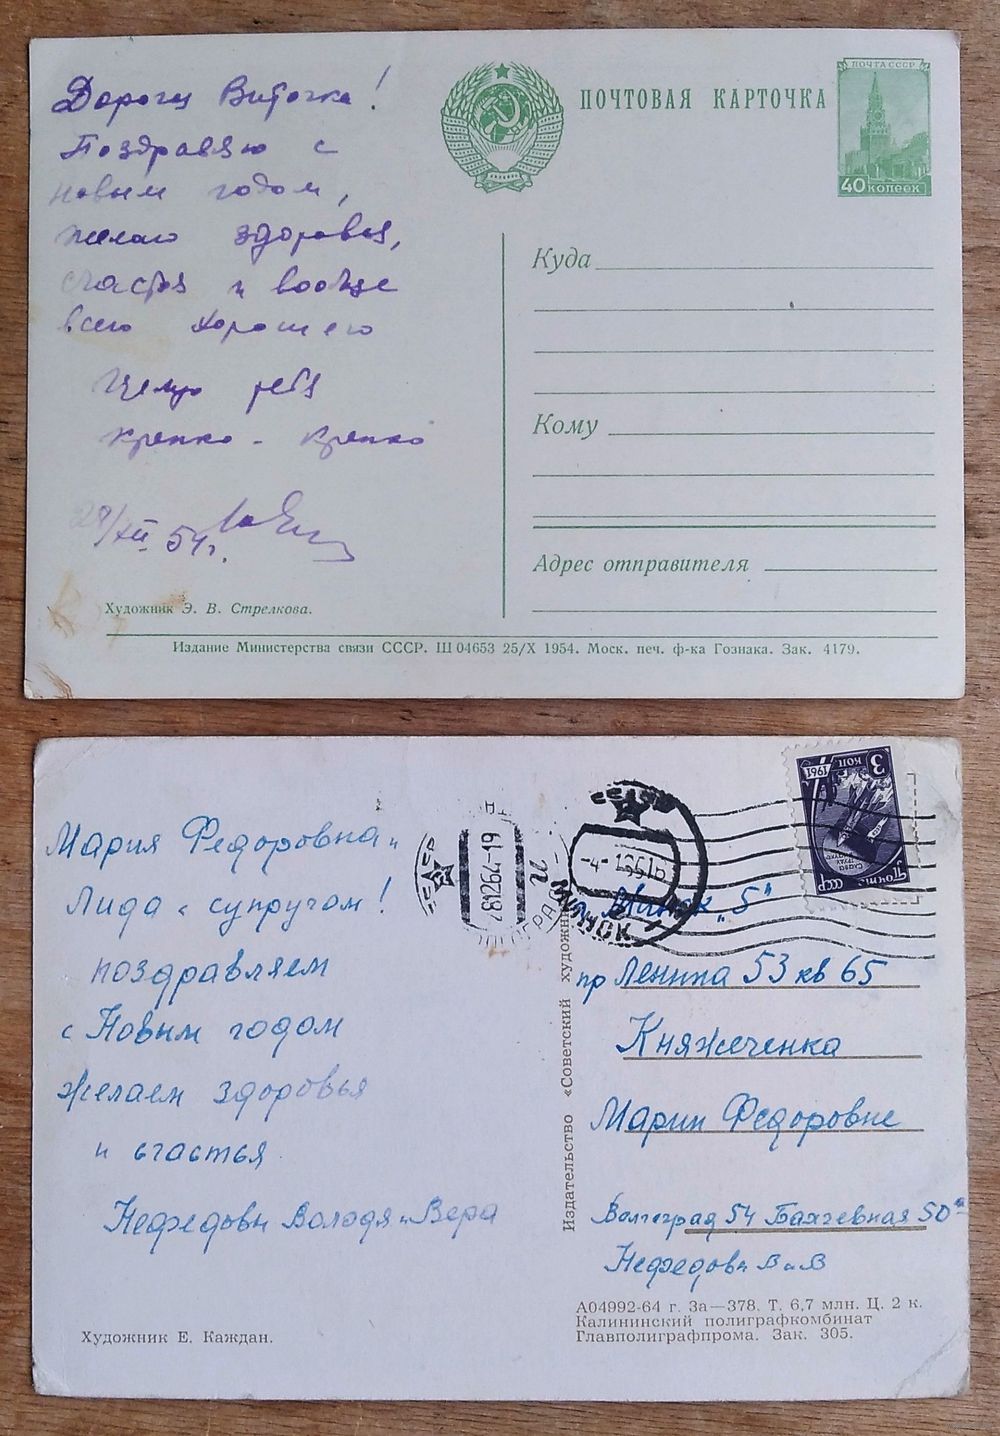 Дорогая Виточка!
Поздравляю с
новым годом,
желаю здоровья,
счастья и вообще
всего хорошего
Целую тебя
крепко - крепко
28/XII 54г.
Художник Э. В. Стрелкова.
ПОЧТОВАЯ КАРТОЧКА
ПОЧТА СССР
40 КОПЕЕК
Куда
Кому
Адрес отправителя
Издание Министерства связи СССР. Ш 04653 25/X 1954. Моск. печ. ф-ка Гознака. Зак. 4179.
Мария Федоровна и
Лида с супругом!
поздравляем
с Новым годом
желаем здоровья
и счастья
Нефедовы Володя и Вера
Художник Е. Каждан.
Издательство «Советский художник»
СССР
СССР
МИНСК
3 КОП
1961
Почта СССР
г Минск „5"
пр Ленина 53 кв 65
Княжеченка
Марии Федоровне
Волгоград 54 Бахчевная 50а
Нефедовы В и В
А04992-64 г. За—378. Т. 6,7 млн. Ц. 2 к.
Калининский полиграфкомбинат
Главполиграфпрома. Зак. 305.